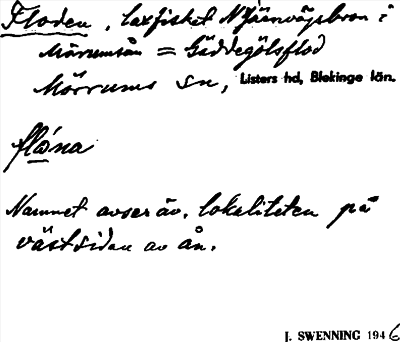 Floden, laxfisket N Järnvägsbron i
Mörrumsån = Gäddegölsflod
Mörrums sn, Listers hd, Blekinge län.
flǝ́na
Namnet avser äv. lokaliteten på
västsidan av ån.
J. SWENNING 1946